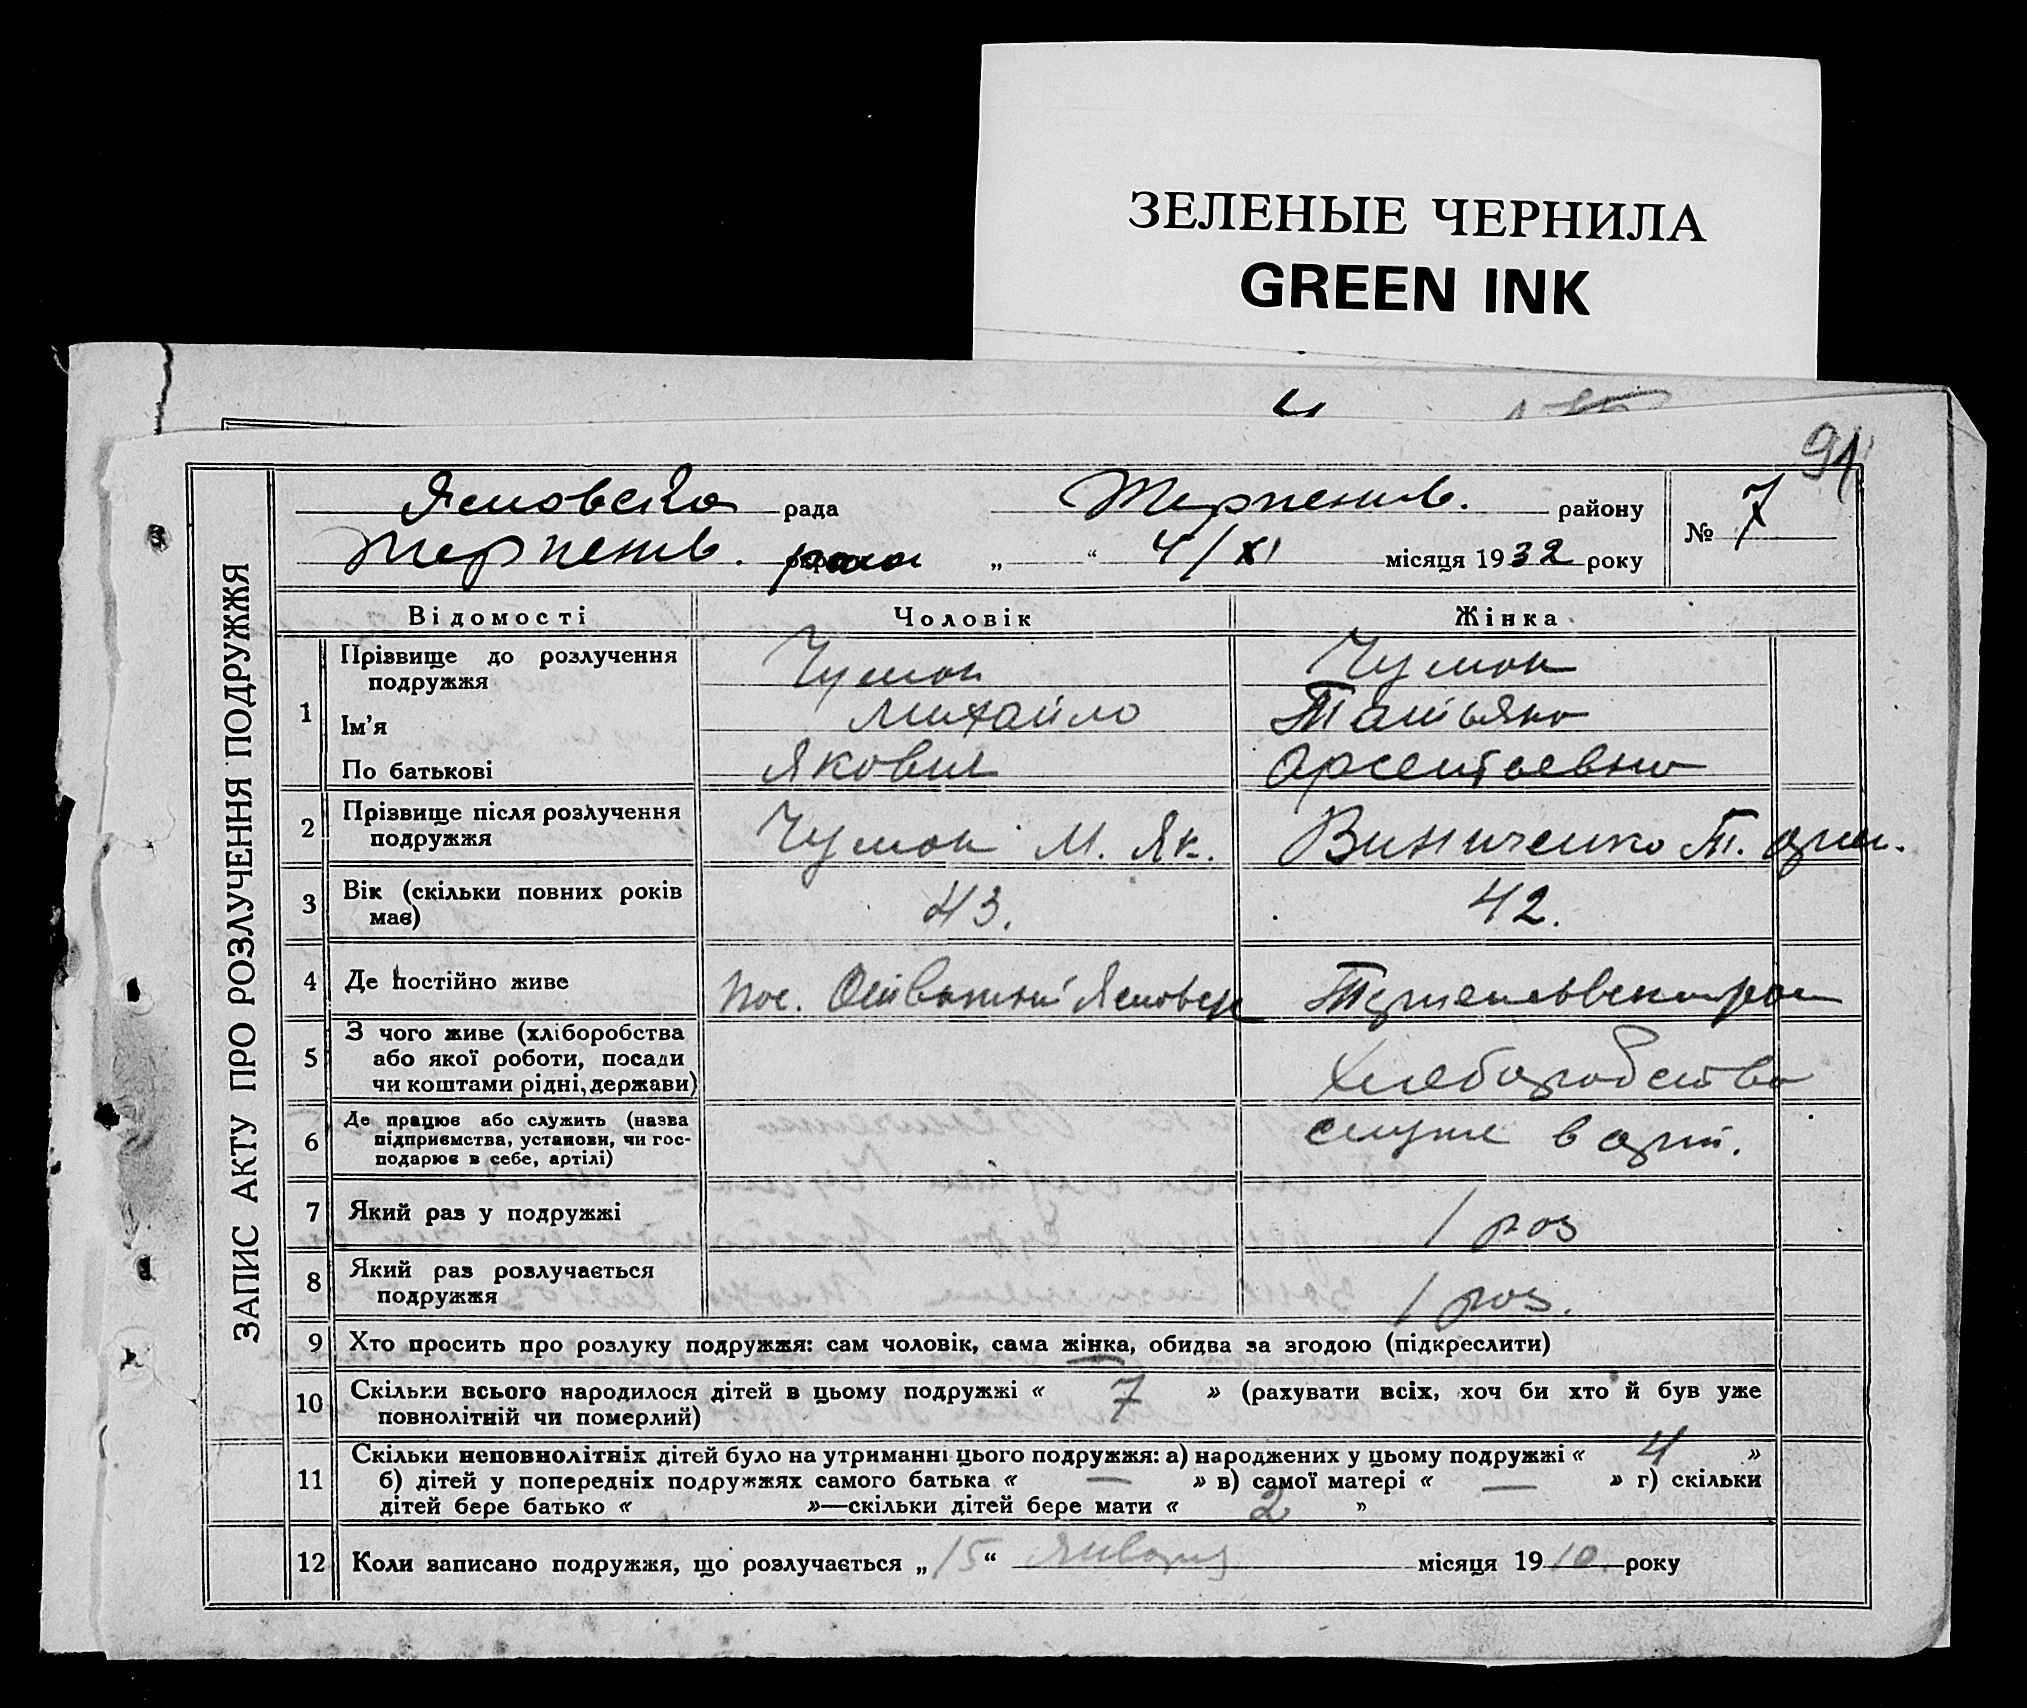 ЗЕЛЕНЫЕ ЧЕРНИЛА
GREEN INK
91
ЗАПИС АКТУ ПРО РОЗЛУЧЕННЯ ПОДРУЖЖЯ
рада Терпенів. району № 7
Терпенів. „ “ 4/XI місяця 1932 року
Відомості Чоловік Жінка
1 Прізвище до розлучення подружжя Чумак Чумак
Ім'я Михайло Татьяна
По батькові Яковил Арсентьевна
2 Прізвище після розлучення подружжя Чумак М. Як. Винниченко Т.
3 Вік (скільки повних років має) 43. 42.
4 Де постійно живе пос.
5 З чого живе (хліборобства або якої роботи, посади чи коштами рідні, держави) Хлеборобство
6 Де працює або служить (назва підприємства, установи, чи господарює в себе, артілі) в арт.
7 Який раз у подружжі 1 раз
8 Який раз розлучається подружжя 1 раз.
9 Хто просить про розлуку подружжя: сам чоловік, сама жінка, обидва за згодою (підкреслити)
10 Скільки всього народилося дітей в цьому подружжі « 7 » (рахувати всіх, хоч би хто й був уже
повнолітній чи померлий)
11 Скільки неповнолітніх дітей було на утриманні цього подружжя: а) народжених у цьому подружжі « 4 »
б) дітей у попередніх подружжях самого батька « — » в) самої матері « — » г) скільки
дітей бере батько « »—скільки дітей бере мати « 2 »
12 Коли записано подружжя, що розлучається „ 15 “ Января місяця 1910 року